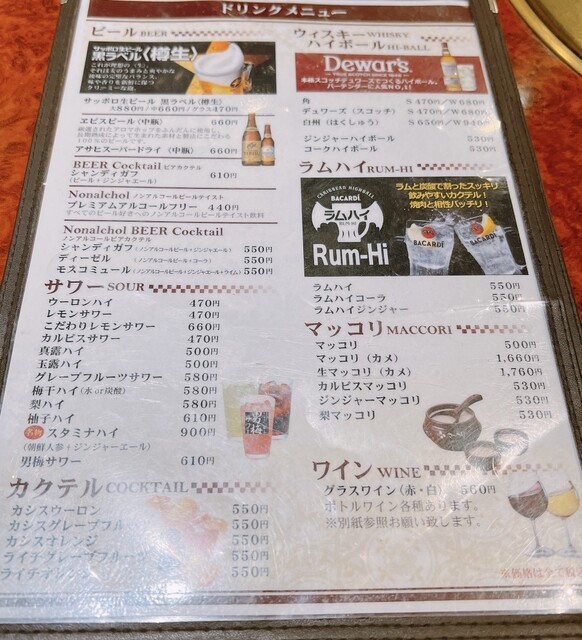 ドリンクメニュー
ビール BEER
サッポロ生ビール
黒ラベル〈樽生〉
サッポロ生ビール 黒ラベル(樽生)
大880円/中660円/グラス470円
ヱビスビール(中瓶) 660円
アサヒスーパードライ(中瓶) 660円
BEER Cocktail ビアカクテル
シャンディガフ 610円
(ビール+ジンジャエール)
Nonalchol ノンアルコールビールテイスト
プレミアムアルコールフリー 440円
すべてのビール好きへのノンアルコールビールテイスト飲料
Nonalchol BEER Cocktail
ノンアルコールビアカクテル
シャンディガフ(ノンアルコールビール+ジンジャエール) 550円
ディーゼル (ノンアルコールビール+コーラ) 550円
モスコミュール(ノンアルコールビール+ジンジャエール+ライム) 550円
サワー SOUR
ウーロンハイ 470円
レモンサワー 470円
こだわりレモンサワー 660円
カルピスサワー 470円
真露ハイ 500円
玉露ハイ 500円
グレープフルーツサワー 580円
梅干ハイ(水 or 炭酸) 580円
梨ハイ 580円
柚子ハイ 610円
名物 スタミナハイ 900円
(朝鮮人参+ジンジャーエール)
男梅サワー 610円
カクテル COCKTAIL
カシスウーロン 550円
カシスグレープフル 550円
カシスオレンジ 550円
ライチグレープフルーツ 550円
550円
ウィスキー WHISKY
ハイボール HI-BALL
Dewar's
本格スコッチデュワーズでつくるハイボール。
バーテンダーに人気NO.1!
角 S 470円/W 680円
デュワーズ(スコッチ) S 470円/W 680円
白州(はくしゅう) S 650円/W 940円
ジンジャーハイボール 530円
コークハイボール 530円
ラムハイ RUM-HI
CARIBBEAN HIGHBALL
BACARDI
ラムハイ
Rum-Hi
ラムと炭酸で割ったスッキリ
飲みやすいカクテル!
焼肉と相性バッチリ!
BACARDI
BACARDI
ラムハイ 550円
ラムハイコーラ 550円
ラムハイジンジャー 550円
マッコリ MACCORI
マッコリ 500円
マッコリ(カメ) 1,660円
生マッコリ(カメ) 1,760円
カルピスマッコリ 530円
ジンジャーマッコリ 530円
梨マッコリ 530円
ワイン WINE
グラスワイン(赤・白) 560円
ボトルワイン各種あります。
※別紙参照お願い致します。